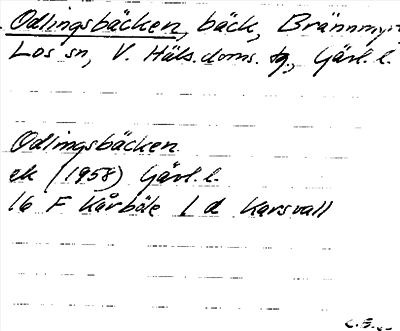 Odlingsbäcken, bäck, Brännmyr
Los sn, V. Häls. doms. tg, Gävl. l.
Odlingsbäcken
ek (1958) Gävl. l.
16 F Kårböle 1 d Karsvall